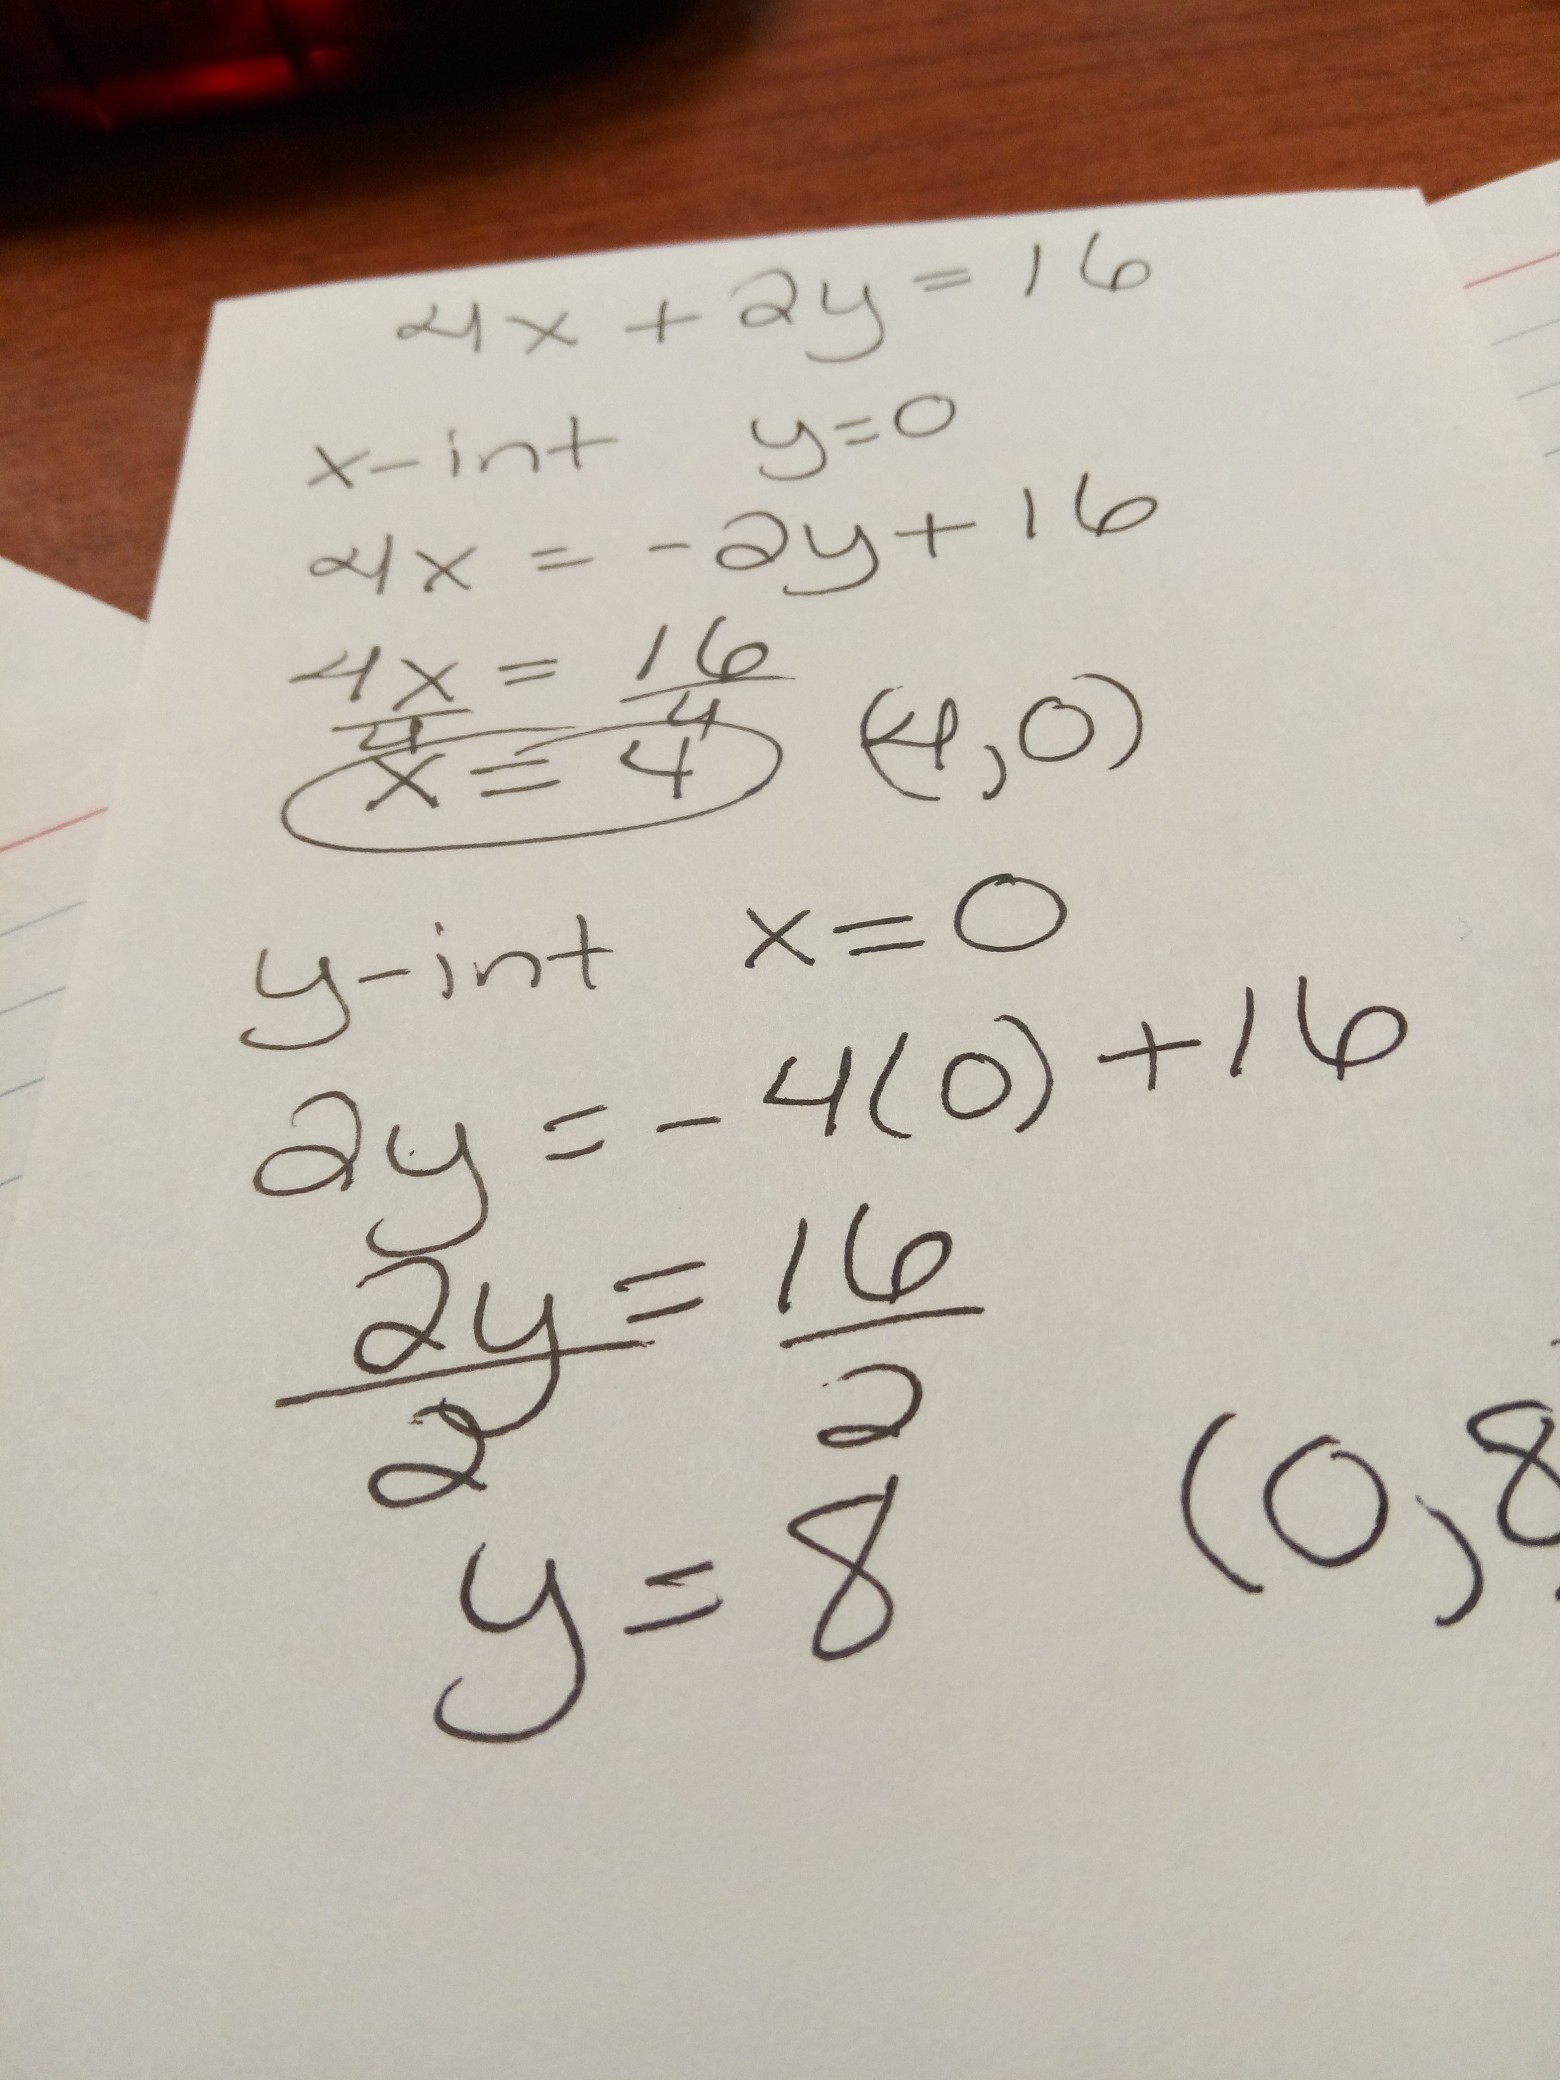 4x + 2y = 16
x-int y=0
4x = -2y + 16
4x = 16
4 4
x = 4 (4,0)
y-int x=0
2y = -4(0) + 16
2y = 16
2 2
y = 8 (0,8